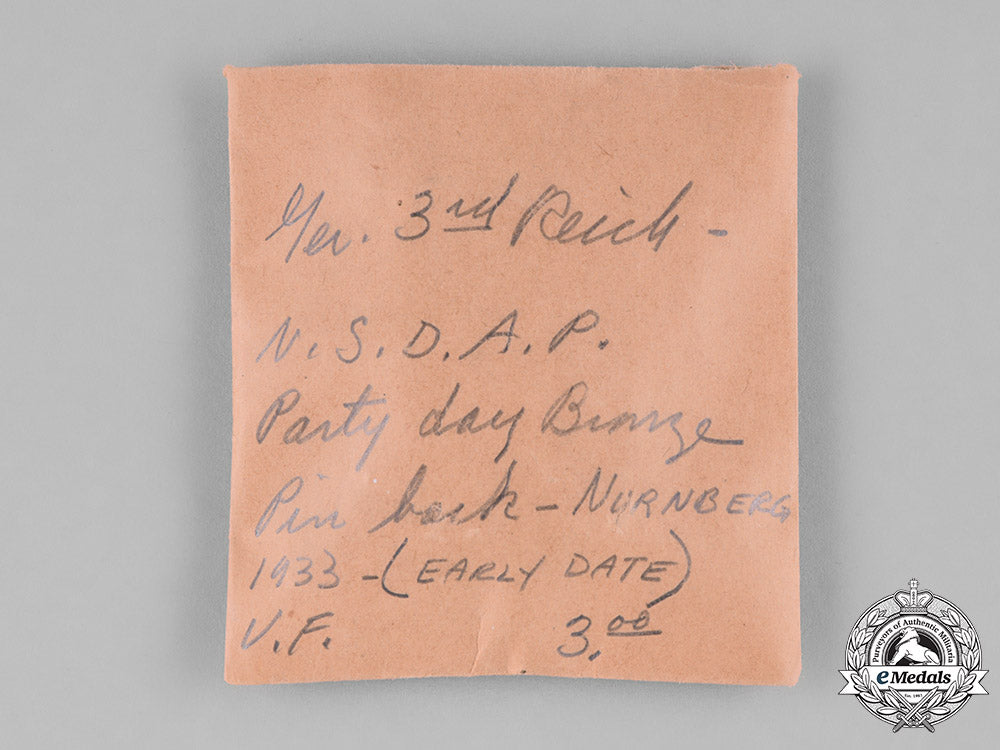 Ger. 3rd Reich -
N.S.D.A.P.
Party day Bronze
Pin back - NURNBERG
1933 - (EARLY DATE)
V.F. 3.00
Purveyors of Authentic Militaria
eMedals